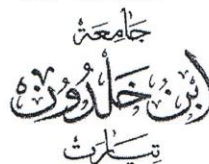 جَامِعَة
ابْنُ خَلْدُون
تيارت